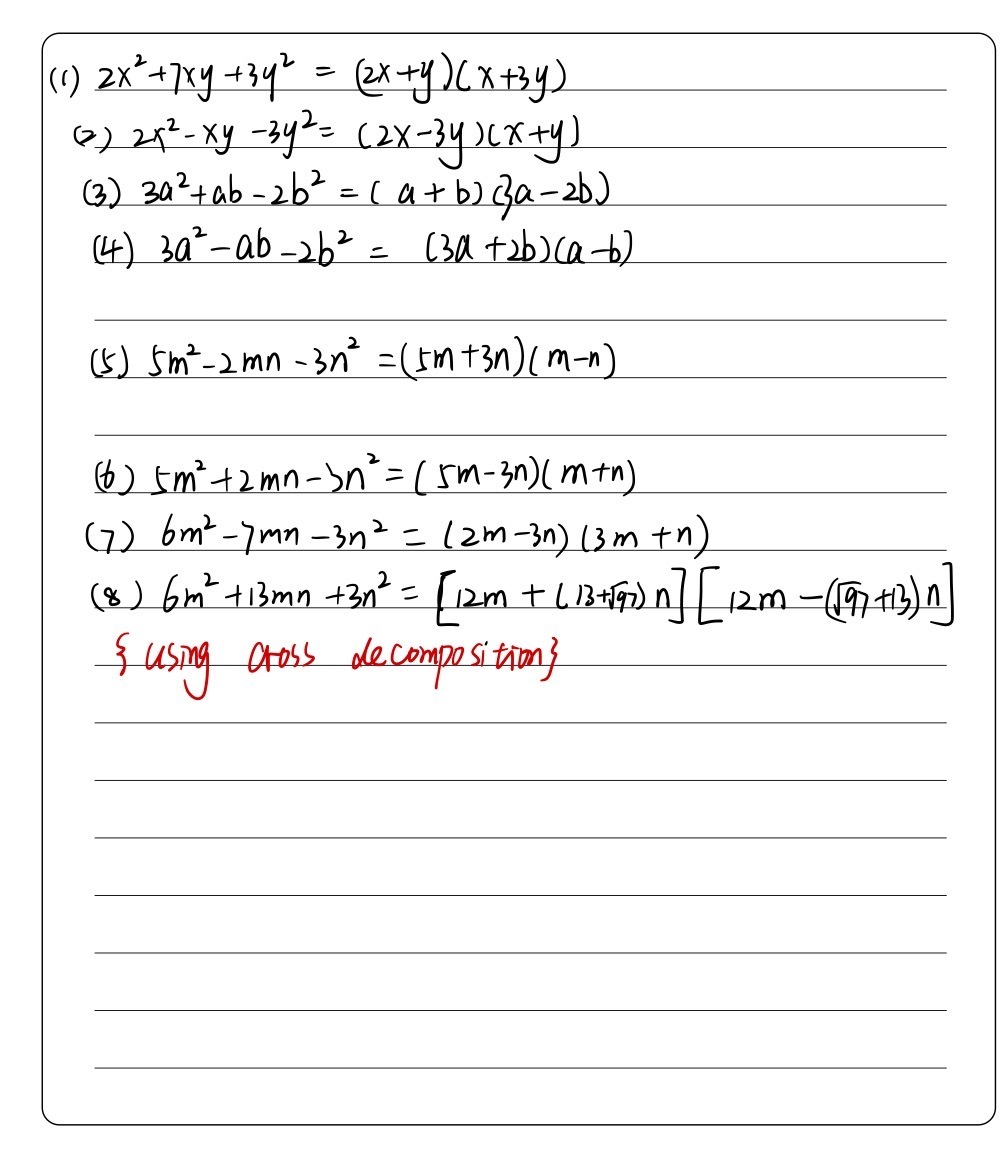 (1) 2x²+7xy+3y² = (2x+y)(x+3y)
(2) 2x²-xy-3y²= (2x-3y)(x+y)
(3) 3a²+ab-2b² = (a+b)(3a-2b)
(4) 3a²-ab-2b² = (3a+2b)(a-b)
(5) 5m²-2mn-3n² =(5m+3n)(m-n)
(6) 5m²+2mn-3n²=(5m-3n)(m+n)
(7) 6m²-7mn-3n² = (2m-3n)(3m+n)
(8) 6m²+13mn+3n² = [12m+(13+√97)n][12m-(√97+13)n]
{using cross decomposition}